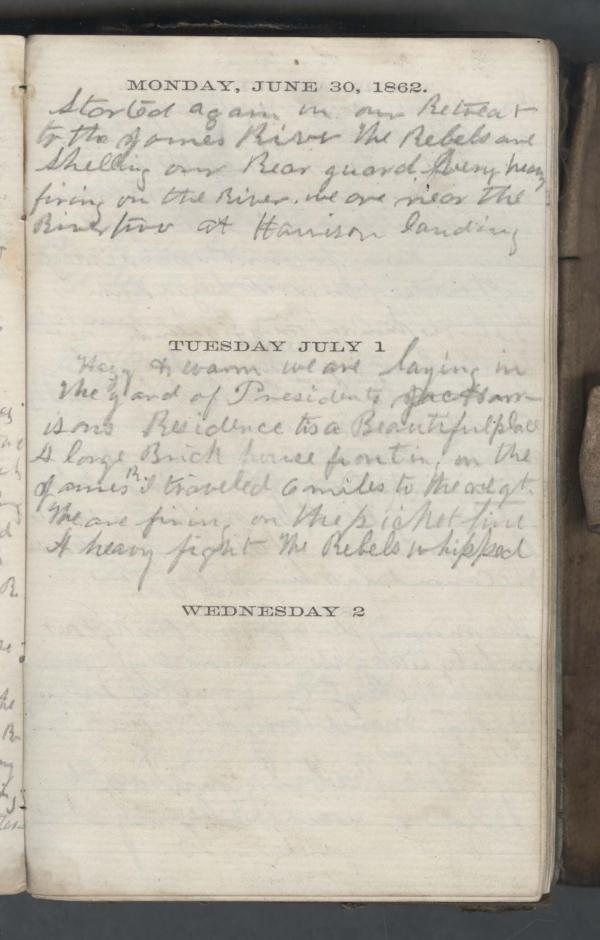 MONDAY, JUNE 30, 1862.
Started again in our Retreat
to the James River The Rebels are
Shelling our Rear guard. Very heavy
firing on the River. we are near the
River two at Harrison landing
TUESDAY JULY 1
Hazy & warm we are laying in
the yard of Presidents Harr-
isons Residence tis a Beautiful place
A large Brick house fronting on the
James R I traveled 6 miles to the regt.
The are firing on the picket line
A heavy fight The Rebels whipped
WEDNESDAY 2